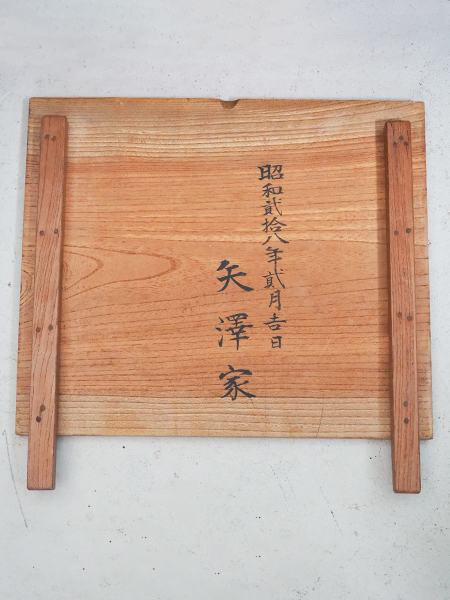 昭和貳拾八年貳月吉日
矢澤家